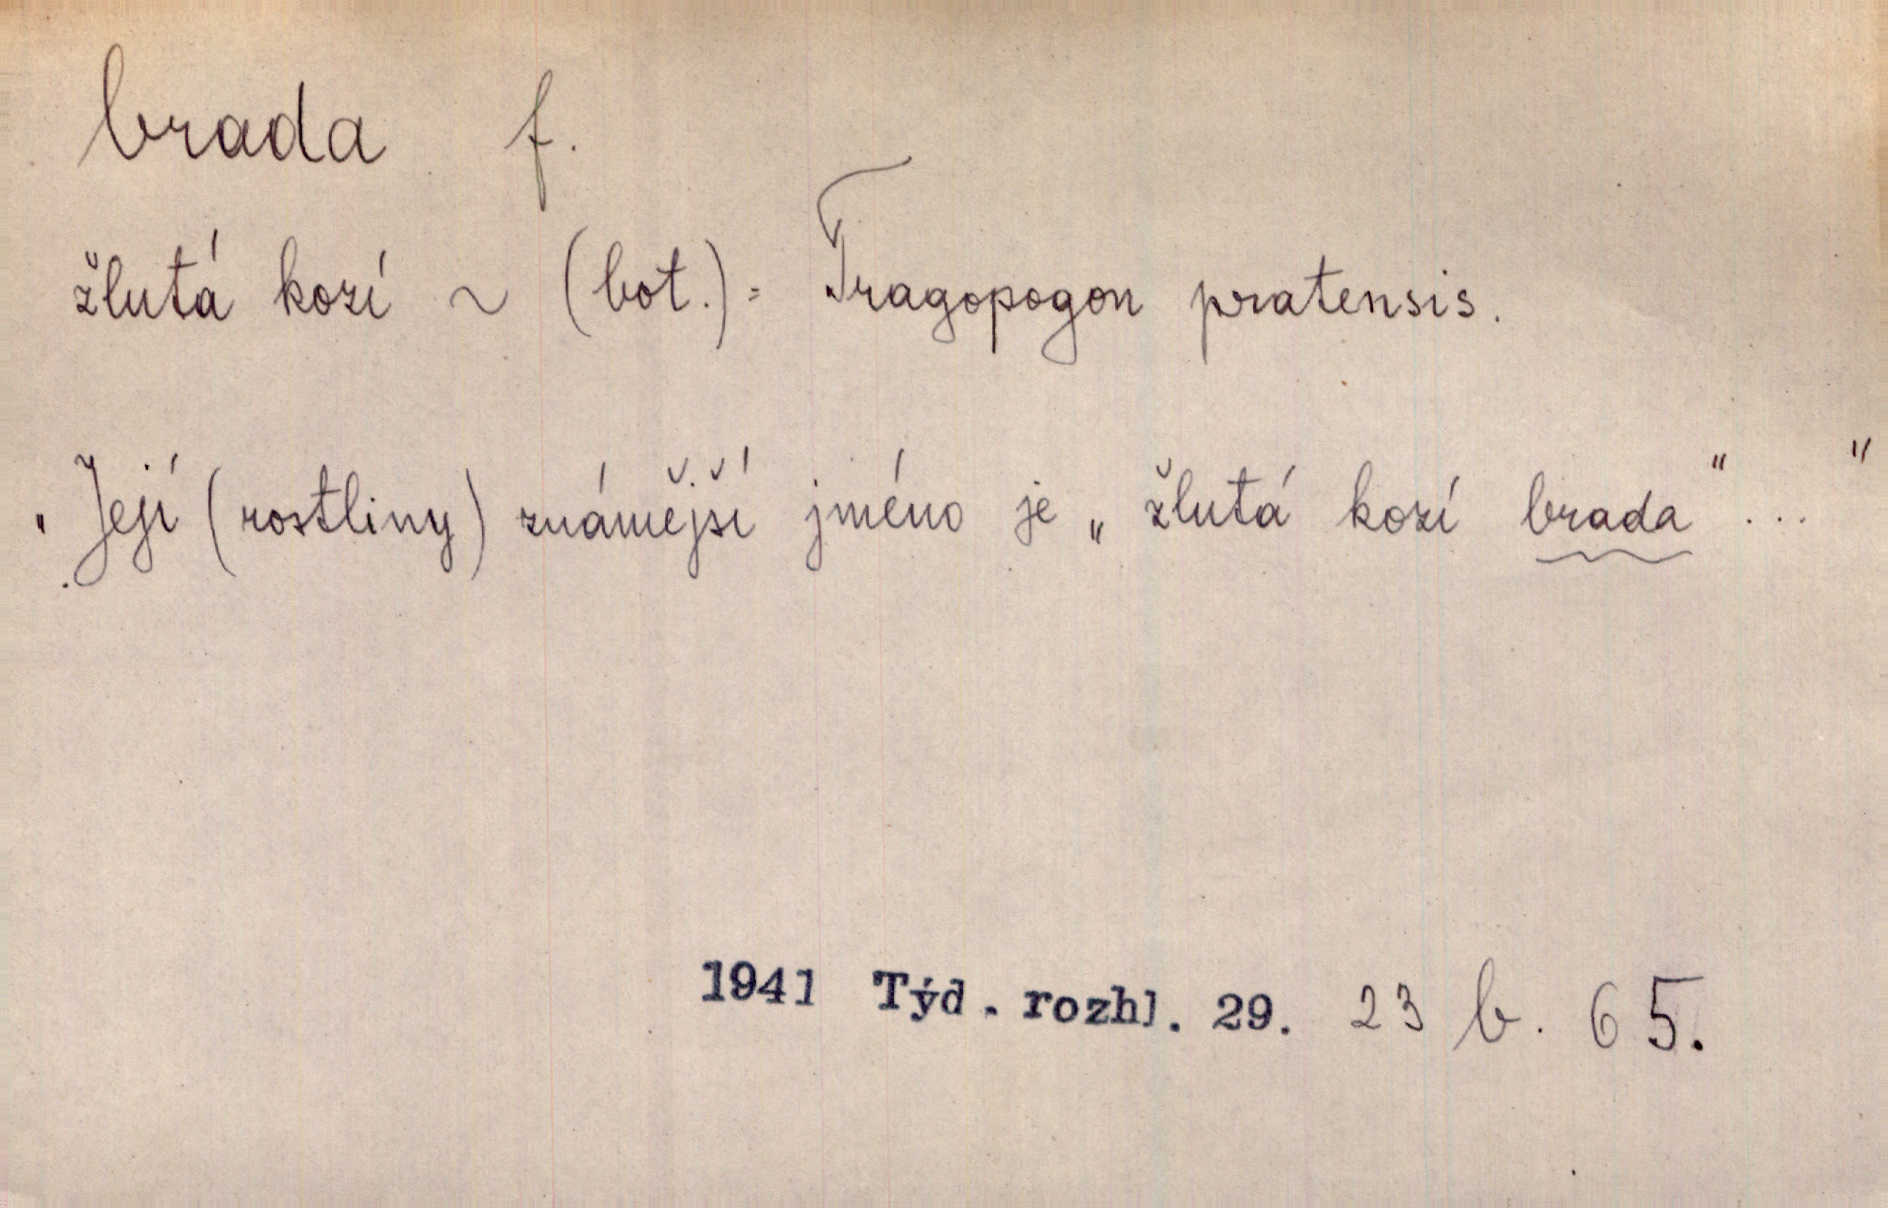 brada f.
žlutá kozí ~ (bot.) = Tragopogon pratensis.
„Její (rostliny) známější jméno je „žlutá kozí brada“ ...“
1941 Týd. rozhl. 29. 23 b. 65.